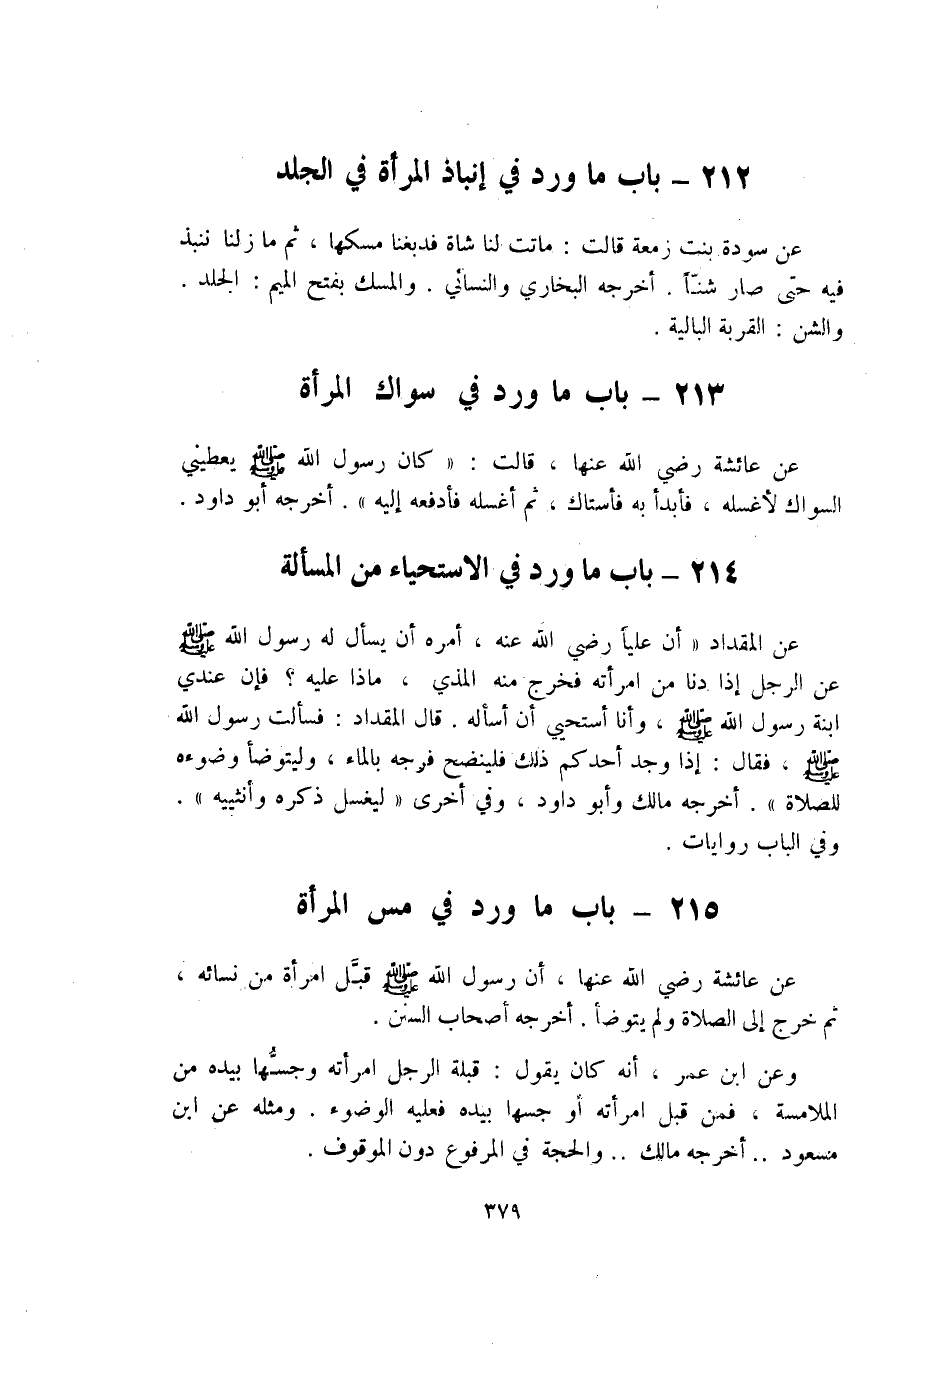 ٢١٢ – باب ما ورد في إنباذ المرأة في الجلد
عن سودة بنت زمعة قالت : ماتت لنا شاة فدبغنا مسكها ، ثم ما زلنا ننبذ
فيه حتى صار شنّاً . أخرجه البخاري والنسائي . والمسك بفتح الميم : الجلد .
والشن : القربة البالية .
٢١٣ – باب ما ورد في سواك المرأة
عن عائشة رضي الله عنها ، قالت : « كان رسول الله ﷺ يعطيني
السواك لأغسله ، فأبدأ به فأستاك ، ثم أغسله فأدفعه إليه » . أخرجه أبو داود .
٢١٤ – باب ما ورد في الاستحياء من المسألة
عن المقداد « أن علياً رضي الله عنه ، أمره أن يسأل له رسول الله ﷺ
عن الرجل إذا دنا من امرأته فخرج منه المذي ، ماذا عليه ؟ فإن عندي
ابنة رسول الله ﷺ ، وأنا أستحيي أن أسأله . قال المقداد : فسألت رسول الله
ﷺ ، فقال : إذا وجد أحدكم ذلك فلينضح فرجه بالماء ، وليتوضأ وضوءه
للصلاة » . أخرجه مالك وأبو داود ، وفي أخرى « ليغسل ذكره وأنثييه » .
وفي الباب روايات .
٢١٥ – باب ما ورد في مس المرأة
عن عائشة رضي الله عنها ، أن رسول الله ﷺ قبَّل امرأة من نسائه ،
ثم خرج إلى الصلاة ولم يتوضأ . أخرجه أصحاب السنن .
وعن ابن عمر ، أنه كان يقول : قبلة الرجل امرأته وجسُّها بيده من
الملامسة ، فمن قبل امرأته أو جسها بيده فعليه الوضوء . ومثله عن ابن
مسعود .. أخرجه مالك .. والحجة في المرفوع دون الموقوف .
٣٧٩